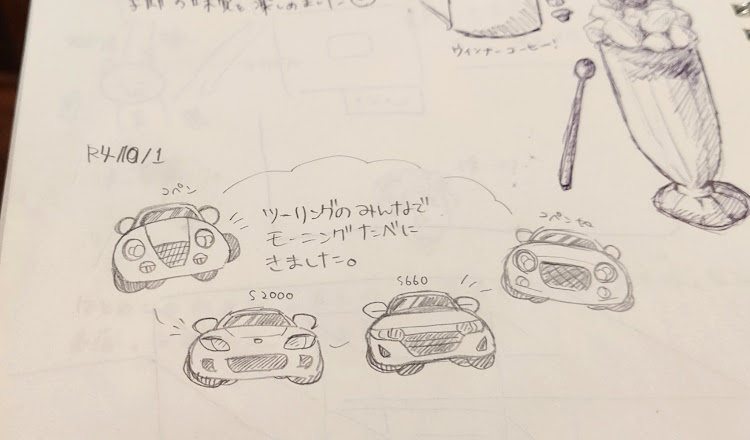 季節の味覚を楽しめました
ウィンナーコーヒー!
R4.10/1
コペン
ツーリングのみんなで
モーニングたべに
きました。
コペンセロ
S2000
S660